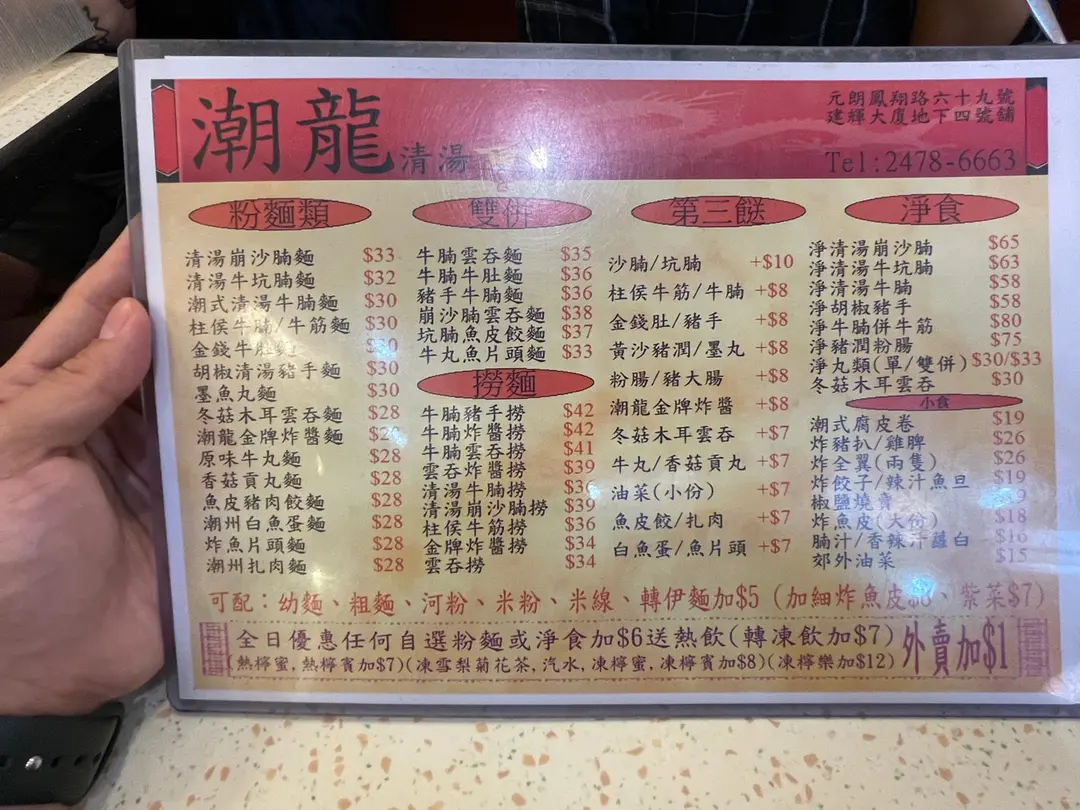 潮龍清湯
元朗鳳翔路六十九號
建輝大廈地下四號舖
Tel:2478-6663
粉麵類
清湯崩沙腩麵 $33
清湯牛坑腩麵 $32
潮式清湯牛腩麵 $30
柱侯牛腩/牛筋麵 $30
金錢牛肚麵 $30
胡椒清湯豬手麵 $30
墨魚丸麵 $30
冬菇木耳雲吞麵 $28
潮龍金牌炸醬麵
原味牛丸麵 $28
香菇貢丸麵 $28
魚皮豬肉餃麵 $28
潮州白魚蛋麵 $28
炸魚片頭麵 $28
潮州扎肉麵 $28
雙併
牛腩雲吞麵 $35
牛腩牛肚麵 $36
豬手牛腩麵 $36
崩沙腩雲吞麵 $38
坑腩魚皮餃麵 $37
牛丸魚片頭麵 $33
撈麵
牛腩豬手撈 $42
牛腩炸醬撈 $42
牛腩雲吞撈 $41
雲吞炸醬撈 $39
清湯牛腩撈
清湯崩沙腩撈 $39
柱侯牛筋撈 $36
金牌炸醬撈 $34
雲吞撈 $34
第三餸
沙腩/坑腩 +$10
柱侯牛筋/牛腩 +$8
金錢肚/豬手 +$8
黃沙豬潤/墨丸 +$8
粉腸/豬大腸 +$8
潮龍金牌炸醬 +$8
冬菇木耳雲吞 +$7
牛丸/香菇貢丸 +$7
油菜(小份) +$7
魚皮餃/扎肉 +$7
白魚蛋/魚片頭 +$7
淨食
淨清湯崩沙腩 $65
淨清湯牛坑腩 $63
淨清湯牛腩 $58
淨胡椒豬手 $58
淨牛腩併牛筋 $80
淨豬潤粉腸 $75
淨丸類(單/雙併) $30/$33
冬菇木耳雲吞 $30
小食
潮式腐皮卷 $19
炸豬扒/雞脾 $26
炸全翼(兩隻) $26
炸餃子/辣汁魚旦
椒鹽燒賣
炸魚皮(大份) $18
腩汁/香辣汁蘿白 $16
郊外油菜 $15
可配：幼麵、粗麵、河粉、米粉、米線、轉伊麵加$5 (加細炸魚皮 、紫菜$7)
全日優惠任何自選粉麵或淨食加$6送熱飲(轉凍飲加$7)
(熱檸蜜,熱檸賓加$7)(凍雪梨菊花茶,汽水,凍檸蜜,凍檸賓加$8)(凍檸樂加$12)
外賣加$1